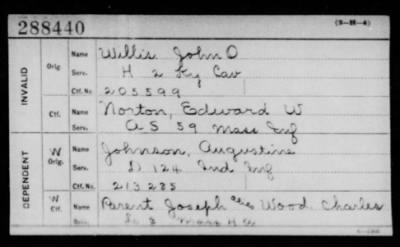 288440
(3-H-4)
INVALID
Orig.
Name Willis John O
Serv. H 2 Ky Cav
Ctf. No. 205599
Ctf.
Name Norton, Edward W
Serv. A S 59 Mass Inf
DEPENDENT
W Orig.
Name Johnson, Augustine
Serv. D 124 Ind Inf
Ctf. No. 213285
W Ctf.
Name Parent Joseph alias Wood Charles
Serv. 3 Mass H A